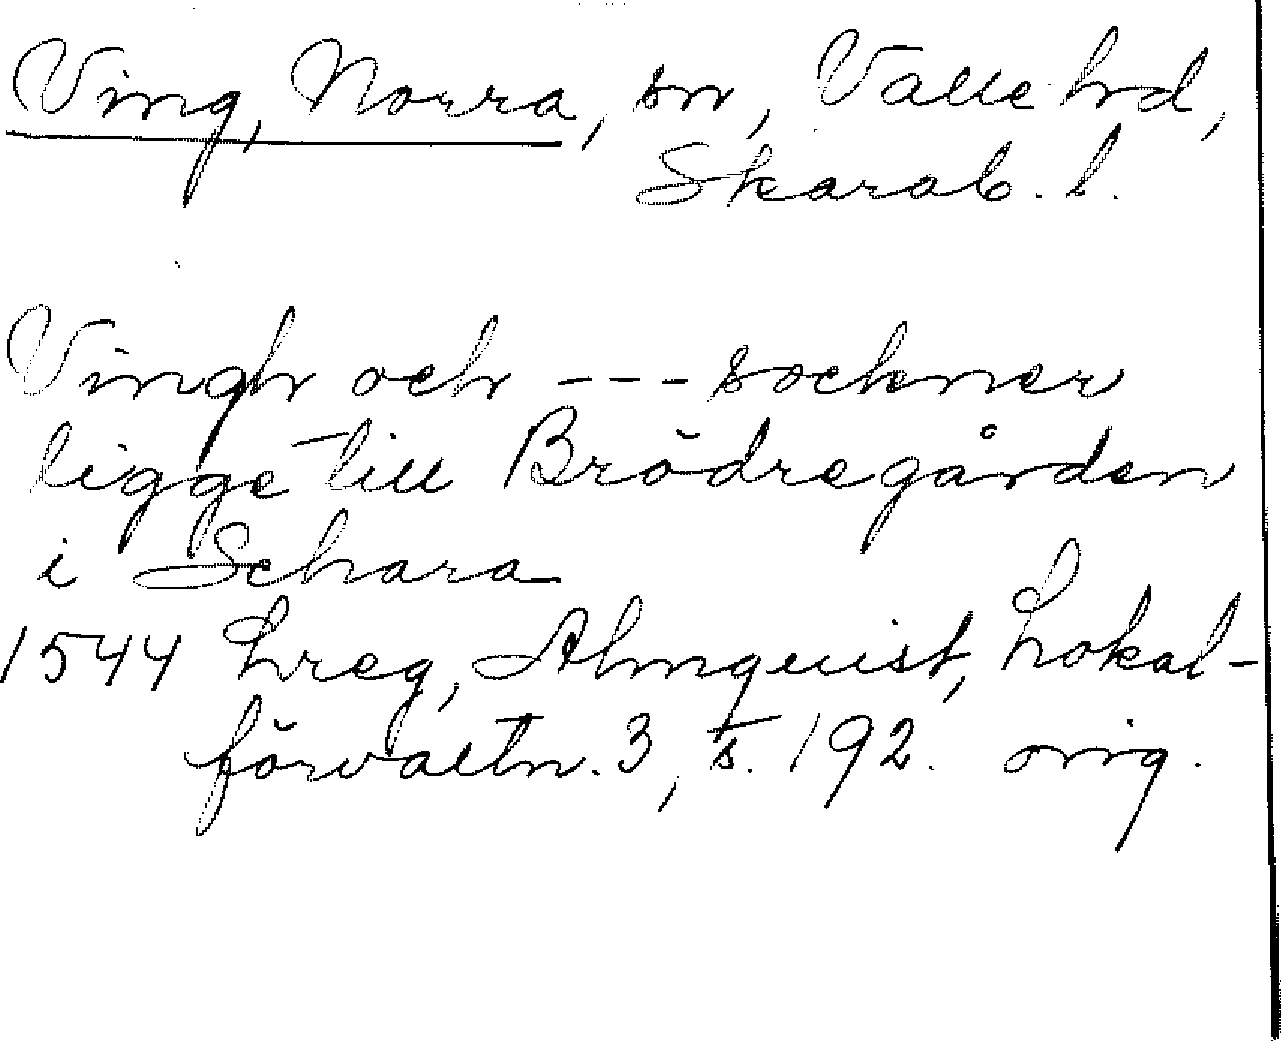 Ving, Norra, sn, Valle hrd,
Skarab. l.
Vingh och --- sockner
ligge till Brödregården
i Schara
1544 Lreg, Almquist, Lokal-
förvaltn. 3, s. 192. orig.